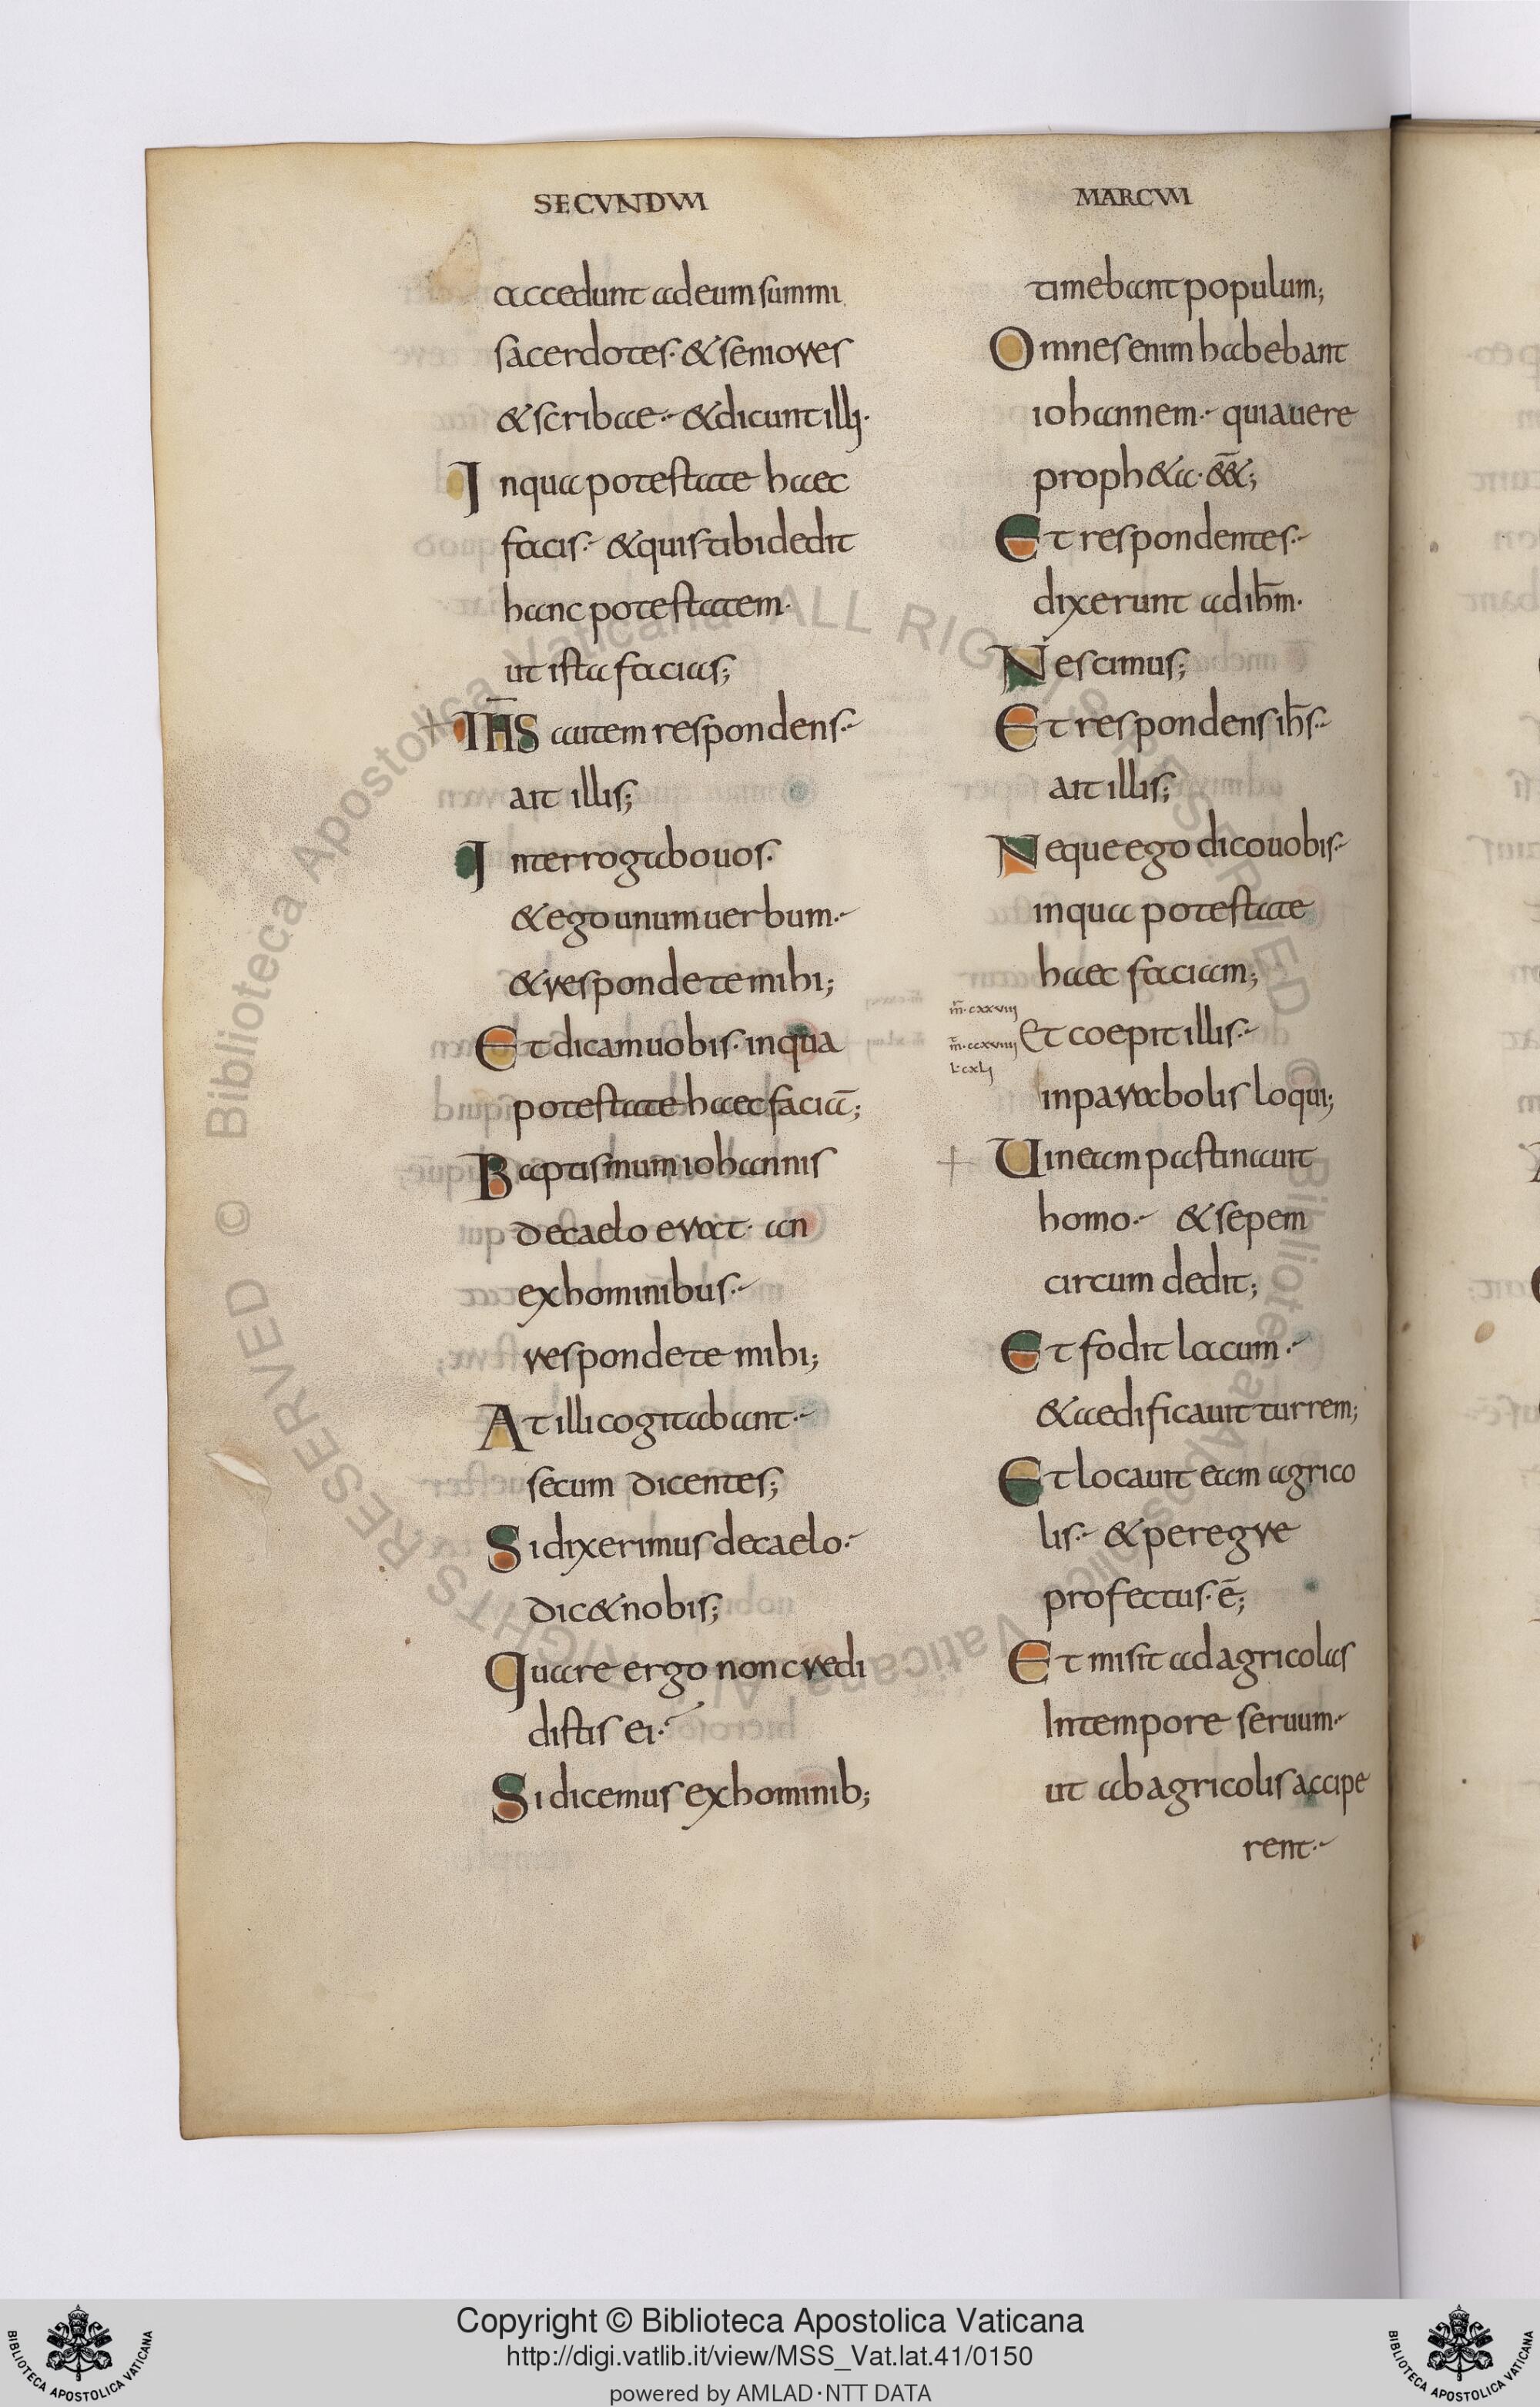 SECVNDVM
accedunt ad eum summi
sacerdotes· & seniores
& scribae·- & dicunt illi·
In qua potestate haec
facis·- & quis tibi dedit
hanc potestatem·
ut ista facias;
+ IH̄S autem respondens·-
ait illis;
Interrogabo uos·
& ego unum uerbum·-
& respondete mihi;
Et dicam uobis· in qua
potestate haec faciā;
Baptismum iohannis
de caelo erat· an
ex hominibus·-
respondete mihi;
At illi cogitabant·-
secum dicentes;
Si dixerimus de caelo·-
dic& nobis;
Quare ergo non credi
distis ei·-
Si dicemus ex hominib;
MARCVM
timebant populum;
Omnes enim habebant
iohannem·- quia uere
proph&a· &&̄;
Et respondentes·-
dixerunt ad ih̄m·
Nescimus;
Et respondens ih̄s·-
ait illis;
Neque ego dico uobis·-
in qua potestate
haec faciam;
m̄·cxxviiij
m̄·ccxviiij
L·cxlj
Et coepit illis·-
in parabolis loqui;
+ Uineam pastinauit
homo·- & sepem
circum dedit;
Et fodit lacum·-
& aedificauit turrem;
Et locauit eam agrico
lis·- & peregre
profectus· ē;
Et misit ad agricolas
In tempore seruum·-
ut ab agricolis accipe
rent·-
© Biblioteca Apostolica Vaticana ALL RIGHTS RESERVED © Biblioteca Apostolica Vaticana ALL RIGHTS RESERVED
Copyright © Biblioteca Apostolica Vaticana
http://digi.vatlib.it/view/MSS_Vat.lat.41/0150
powered by AMLAD·NTT DATA
BIBLIOTECA APOSTOLICA VATICANA
BIBLIOTECA APOSTOLICA VATICANA